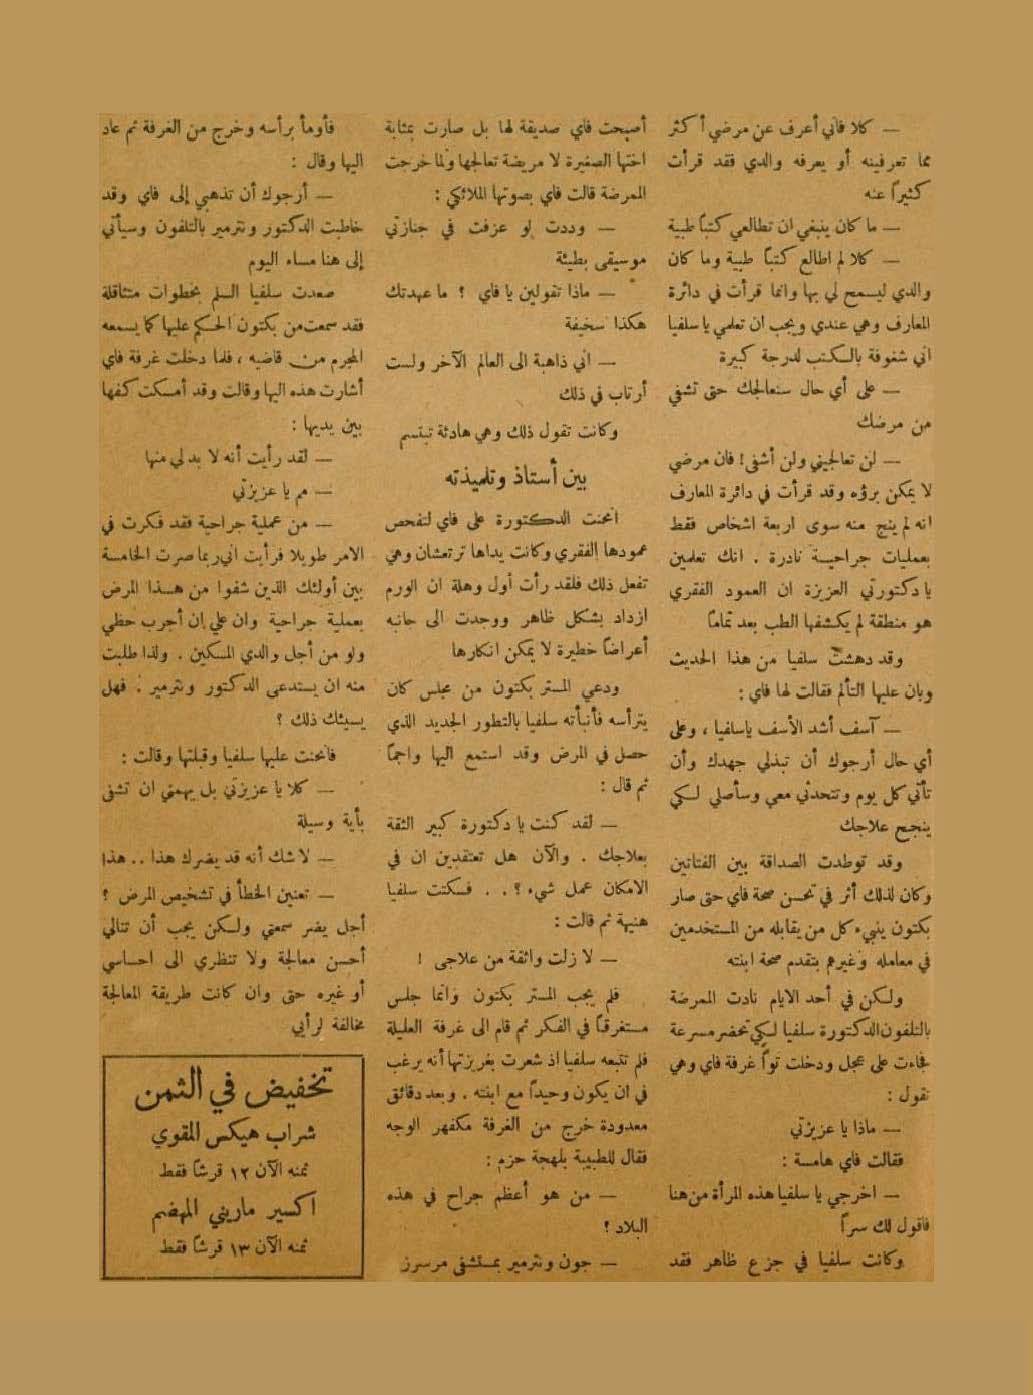 — كلا فاني أعرف عن مرضي أكثر
مما تعرفينه أو يعرفه والدي فقد قرأت
كثيراً عنه
— ما كان ينبغي ان تطالعي كتباً طبية
— كلا لم اطالع كتباً طبية وما كان
والدي ليسمح لي بها وانما قرأت في دائرة
المعارف وهي عندي ويجب ان تعلمي يا سلفيا
اني شغوفة بالكتب لدرجة كبيرة
— على أي حال سنعالجك حتى تشفي
من مرضك
— لن تعالجيني ولن أشفى! فان مرضي
لا يمكن برؤه وقد قرأت في دائرة المعارف
انه لم ينج منه سوى اربعة اشخاص فقط
بعمليات جراحية نادرة . انك تعلمين
يا دكتورتي العزيزة ان العمود الفقري
هو منطقة لم يكشفها الطب بعد تماماً
وقد دهشت سلفيا من هذا الحديث
وبان عليها التألم فقالت لها فاي :
— آسف أشد الأسف يا سلفيا ، وعلى
أي حال أرجوك أن تبذلي جهدك وأن
تأتي كل يوم وتتحدثي معي وسأصلي لكي
ينجح علاجك
وقد توطدت الصداقة بين الفتاتين
وكان لذلك أثر في تحسن صحة فاي حتى صار
بكتون ينبيء كل من يقابله من المستخدمين
في معامله وغيرهم بتقدم صحة ابنته
ولكن في أحد الايام نادت الممرضة
بالتلفون الدكتورة سلفيا لكي تحضر مسرعة
فجاءت على عجل ودخلت تواً غرفة فاي وهي
تقول :
— ماذا يا عزيزتي
فقالت فاي هامسة :
— اخرجي يا سلفيا هذه المرأة من هنا
فاقول لك سراً
وكانت سلفيا في جزع ظاهر فقد
أصبحت فاي صديقة لها بل صارت بمثابة
اختها الصغيرة لا مريضة تعالجها ولما خرجت
الممرضة قالت فاي بصوتها الملائكي :
— وددت لو عزفت في جنازتي
موسيقى بطيئة
— ماذا تقولين يا فاي ؟ ما عهدتك
هكذا سخيفة
— اني ذاهبة الى العالم الآخر ولست
أرتاب في ذلك
وكانت تقول ذلك وهي هادئة تبتسم
بين أستاذ وتلميذته
انحنت الدكتورة على فاي لتفحص
عمودها الفقري وكانت يداها ترتعشان وهي
تفعل ذلك فلقد رأت أول وهلة ان الورم
ازداد بشكل ظاهر ووجدت الى جانبه
أعراضاً خطيرة لا يمكن انكارها
ودعي المستر بكتون من مجلس كان
يترأسه فأنبأته سلفيا بالتطور الجديد الذي
حصل في المرض وقد استمع اليها واجماً
ثم قال :
— لقد كنت يا دكتورة كبير الثقة
بعلاجك . والآن هل تعتقدين ان في
الامكان عمل شيء ؟ . . فسكتت سلفيا
هنيهة ثم قالت :
— لا زلت واثقة من علاجي !
فلم يجب المستر بكتون وانما جلس
مستغرقاً في الفكر ثم قام الى غرفة العليلة
فلم تتبعه سلفيا اذ شعرت بغريزتها أنه يرغب
في ان يكون وحيداً مع ابنته . وبعد دقائق
معدودة خرج من الغرفة مكفهر الوجه
فقال للطبيبة بلهجة حزم :
— من هو أعظم جراح في هذه
البلاد ؟
— جون ونترمير بمستشفى مرسرز
فأومأ برأسه وخرج من الغرفة ثم عاد
اليها وقال :
— أرجوك أن تذهبي إلى فاي وقد
خاطبت الدكتور ونترمير بالتلفون وسيأتي
إلى هنا مساء اليوم
صعدت سلفيا السلم بخطوات متثاقلة
فقد سمعت من بكتون الحكم عليها كما يسمعه
المجرم من قاضيه ، فلما دخلت غرفة فاي
أشارت هذه اليها وقالت وقد أمسكت كفها
بين يديها :
— لقد رأيت أنه لا بد لي منها
— مم يا عزيزتي
— من عملية جراحية فقد فكرت في
الامر طويلا فرأيت اني ربما صرت الخامسة
بين أولئك الذين شفوا من هذا المرض
بعملية جراحية وان علي إن أجرب حظي
ولو من أجل والدي المسكين . ولذا طلبت
منه ان يستدعي الدكتور ونترمير . فهل
يسيئك ذلك ؟
فانحنت عليها سلفيا وقبلتها وقالت :
— كلا يا عزيزتي بل يهمني ان تشفى
بأية وسيلة
— لا شك أنه قد يضرك هذا . . هذا
— تعنين الخطأ في تشخيص المرض ؟
أجل يضر سمعتي ولكن يجب أن تنالي
أحسن معالجة ولا تنظري الى احساسي
أو غيره حتى وان كانت طريقة المعالجة
مخالفة لرأيي
تخفيض في الثمن
شراب هيكس المقوي
ثمنه الآن ١٢ قرشاً فقط
اكسير ماريني المهضم
ثمنه الآن ١٣ قرشاً فقط